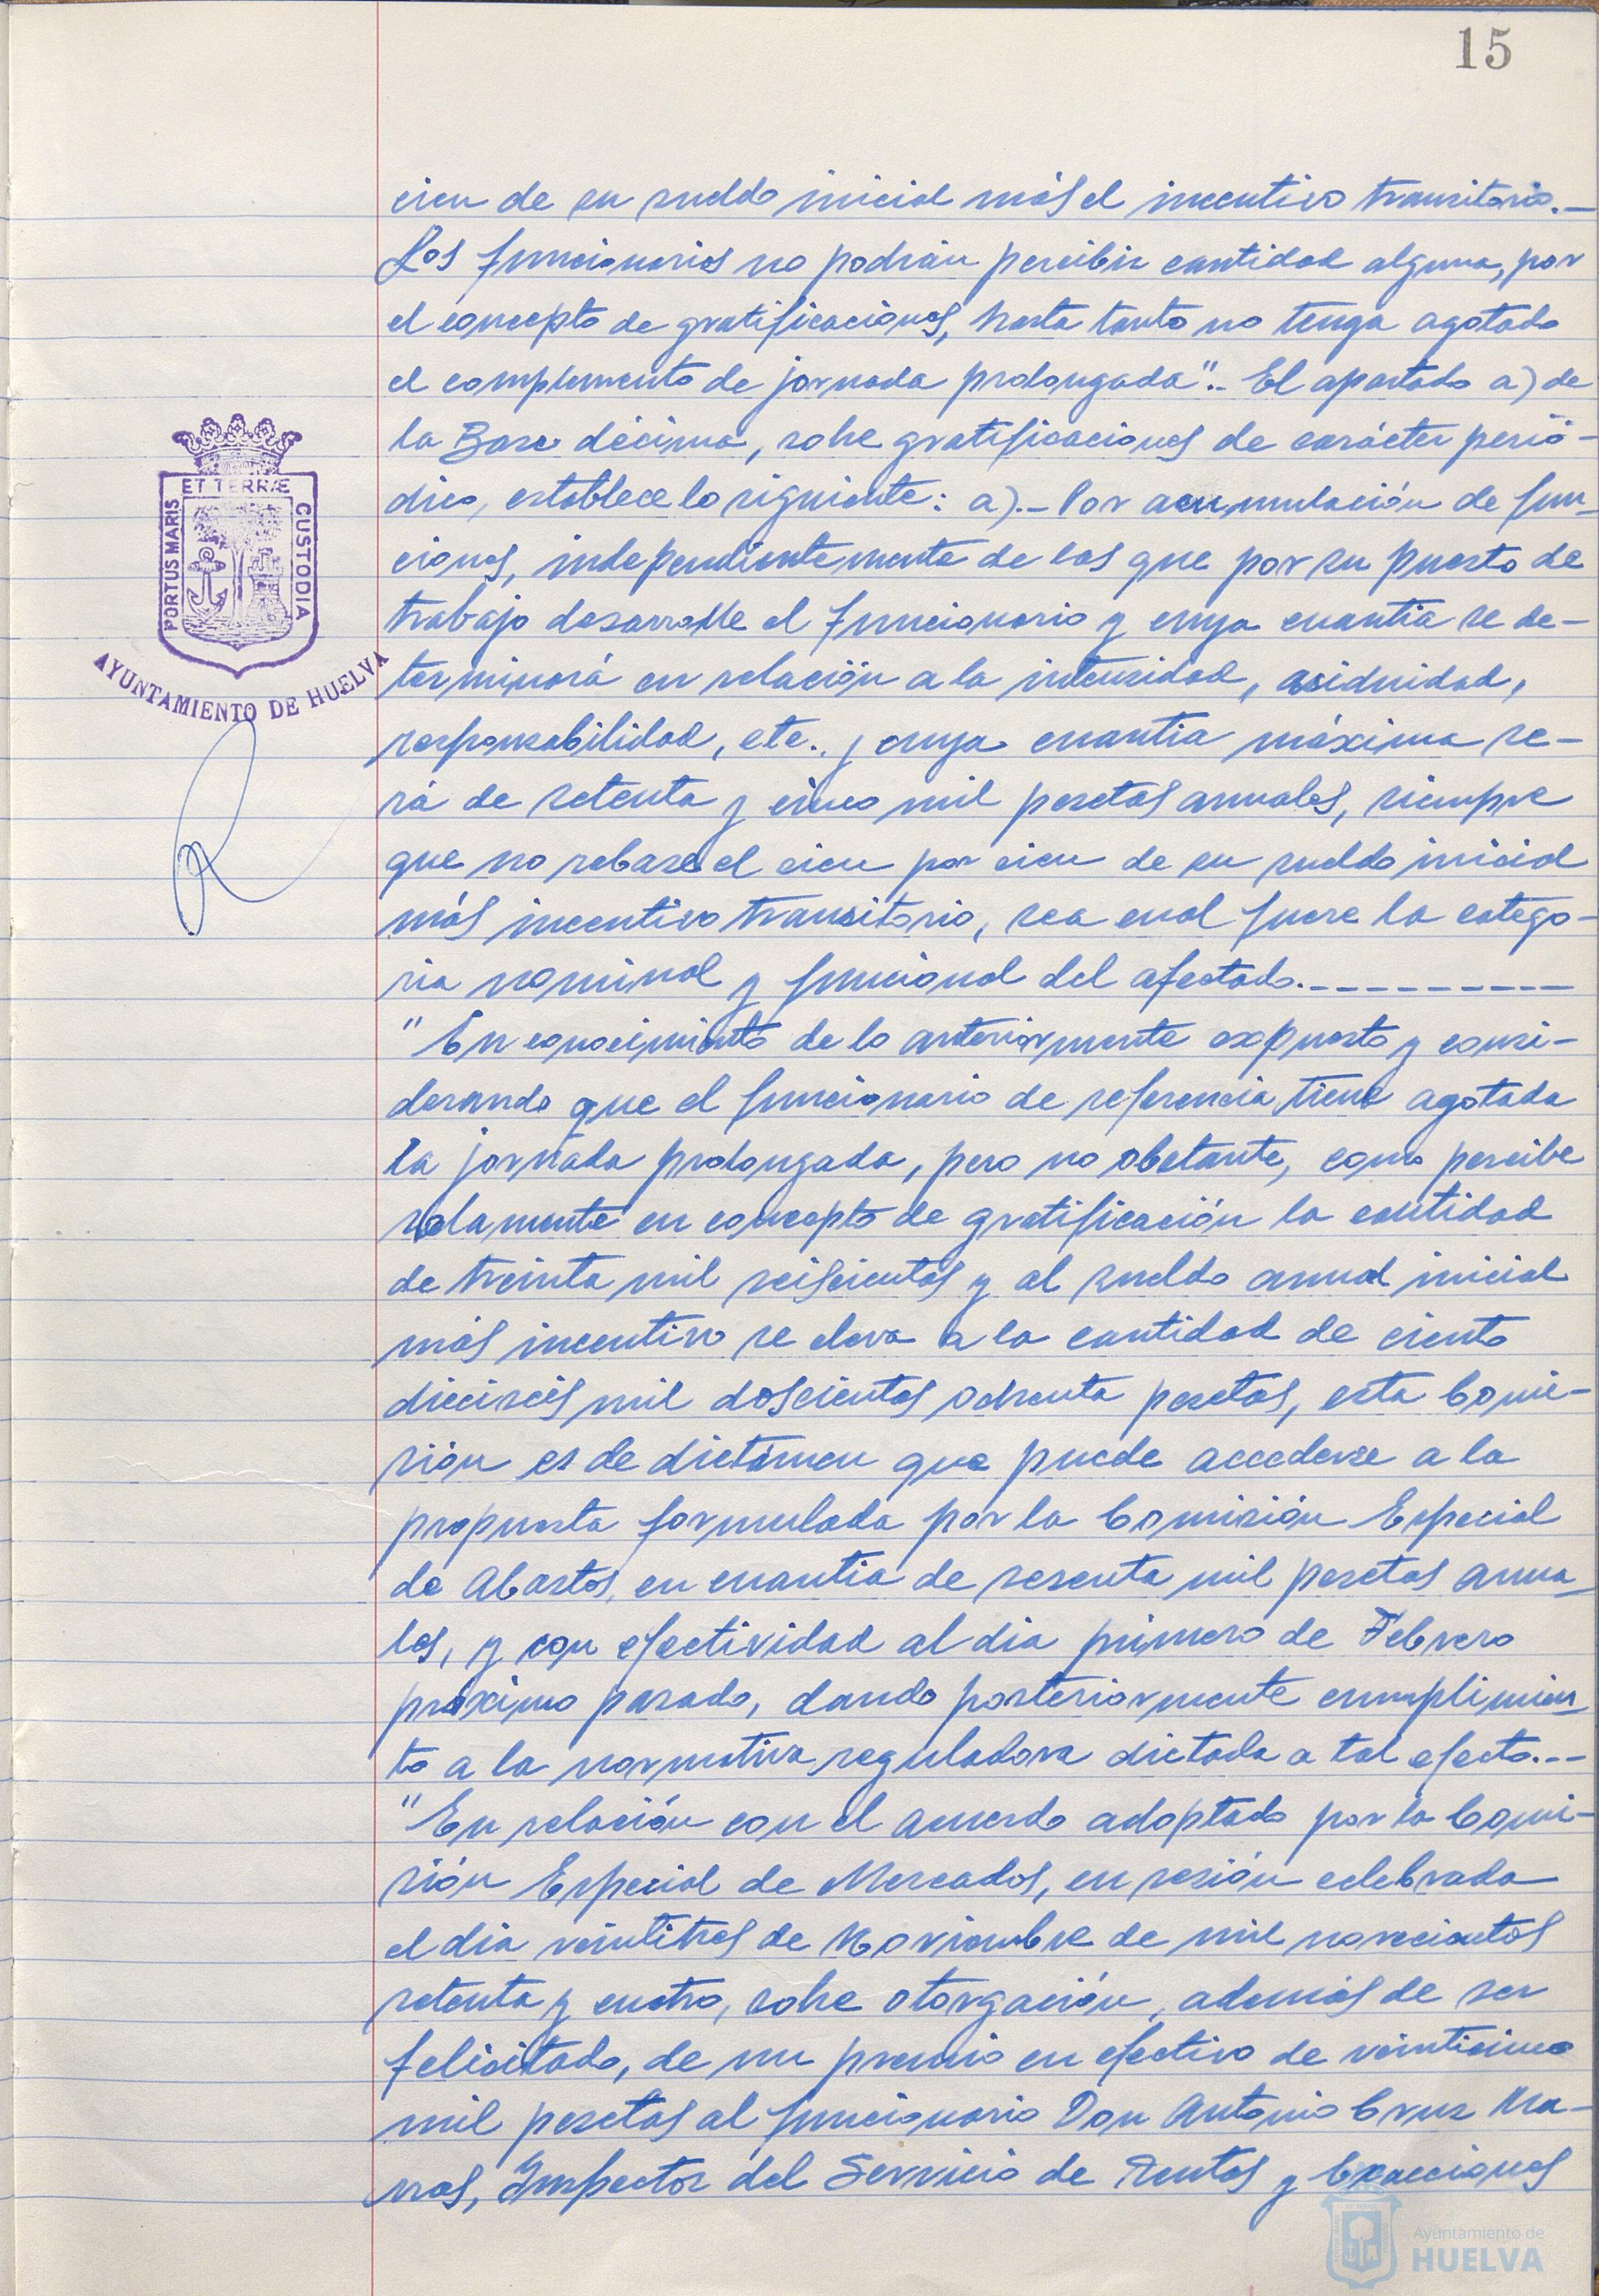 15
cien de su sueldo inicial más el incentivo transitorio.-
Los funcionarios no podrán percibir cantidad alguna, por
el concepto de gratificaciones, hasta tanto no tenga agotado
el complemento de jornada prolongada".- El apartado a) de
la Base décima, sobre gratificaciones de carácter perió-
dico, establece lo siguiente: a).- Por acumulación de fun-
ciones, independientemente de las que por su puesto de
trabajo desarrolle el funcionario y cuya cuantía se de-
terminará en relación a la intensidad, asiduidad,
responsabilidad, etc., y cuya cuantía máxima se-
rá de setenta y cinco mil pesetas anuales, siempre
que no rebase el cien por cien de su sueldo inicial
más incentivo transitorio, sea cual fuere la catego-
ria nominal y funcional del afectado.----------
"En conocimiento de lo anteriormente expuesto y consi-
derando que el funcionario de referencia tiene agotada
la jornada prolongada, pero no obstante, como percibe
solamente en concepto de gratificación la cantidad
de treinta mil seiscientas y al sueldo anual inicial
más incentivo se eleva a la cantidad de ciento
dieciseis mil doscientas ochenta pesetas, esta Comi-
sión es de dictámen que puede accederse a la
propuesta formulada por la Comisión Especial
de Abastos, en cuantia de sesenta mil pesetas anua-
les, y con efectividad al dia primero de Febrero
próximo pasado, dando posteriormente cumplimien-
to a la normativa reguladora dictada a tal efecto.--
"En relación con el acuerdo adoptado por la Comi-
sión Especial de Mercados, en sesión celebrada
el dia veintitres de Noviembre de mil novecientos
setenta y cuatro, sobre otorgación, además de ser
felicitado, de un premio en efectivo de veinticinco
mil pesetas al funcionario Don Antonio Cruz Ma-
ras, Inspector del Servicio de Rentas y Exacciones
PORTUS MARIS
ET TERRÆ
CUSTODIA
AYUNTAMIENTO DE HUELVA
Ayuntamiento de
HUELVA